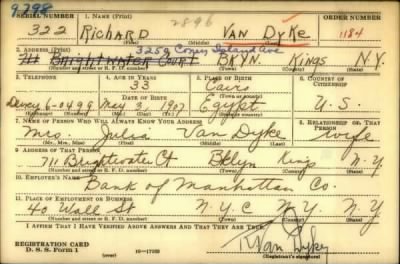 9298
SERIAL NUMBER 1. NAME (Print) ORDER NUMBER
322 RICHARD VAN DYKE 1184
2896
2. ADDRESS (Print) 3252 Coney Island Ave
711 BRIGHTWATER COURT BKYN. KINGS N.Y.
(Number and street or R. F. D. number) (Town) (County) (State)
3. TELEPHONE 4. AGE IN YEARS 5. PLACE OF BIRTH 6. COUNTRY OF CITIZENSHIP
33 Cairo
DATE OF BIRTH (Town or county)
Dewey 6-0499 May 3, 1907 Egypt U. S.
7. NAME OF PERSON WHO WILL ALWAYS KNOW YOUR ADDRESS 8. RELATIONSHIP OF THAT PERSON
Mrs. Julia Van Dyke wife
(Mr., Mrs., Miss) (First) (Middle) (Last)
9. ADDRESS OF THAT PERSON
711 Brightwater Ct Bklyn Kings N.Y.
(Number and street or R. F. D. number) (Town) (County) (State)
10. EMPLOYER'S NAME
Bank of Manhattan Co.
11. PLACE OF EMPLOYMENT OR BUSINESS
40 Wall St N.Y.C N.Y. N.Y
(Number and street or R. F. D. number) (Town) (County) (State)
I AFFIRM THAT I HAVE VERIFIED ABOVE ANSWERS AND THAT THEY ARE TRUE.
REGISTRATION CARD
D. S. S. Form 1 16-17105 R Van Dyke
(Registrant's signature)